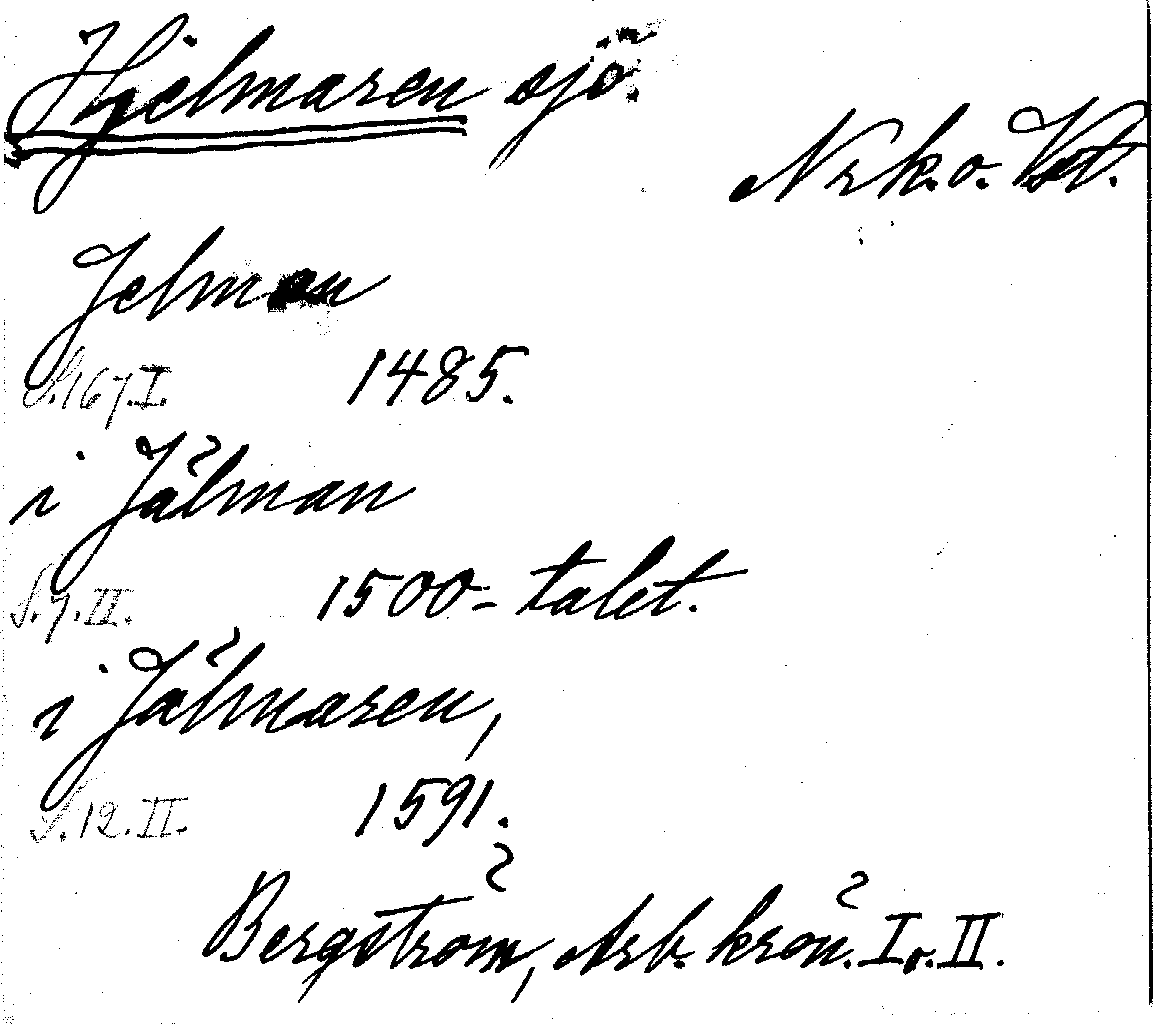 Hjelmaren sjö.
Nrk. o. Vst.
Jelman
S. 167. I. 1485.
i Jälman
S. 7. II. 1500-talet.
i Jälmaren,
S. 12. II. 1591.
Bergström, Arb. krön. I o. II.